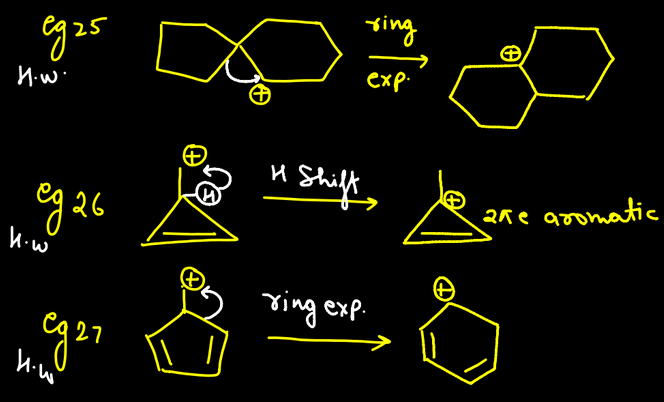 eg 25
H.W.
ring
exp.
⊕
⊕
eg 26
H.W
⊕
H
H Shift
⊕
2πe aromatic
eg 27
H.W
⊕
ring exp.
⊕